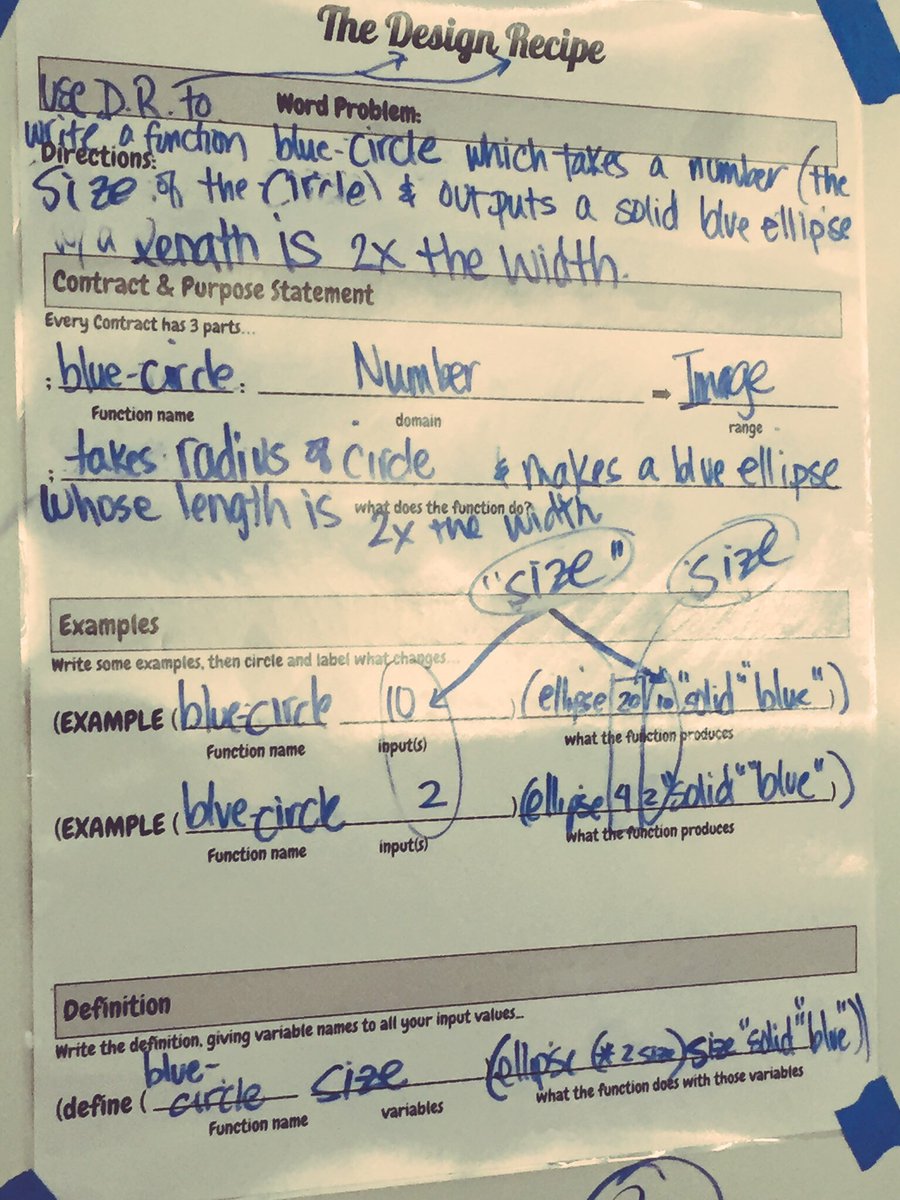 The Design Recipe
Use D.R. to
Word Problem:
write a function blue-circle which takes a number (the
Directions:
size of the circle) & outputs a solid blue ellipse
w/ a length is 2x the width.
Contract & Purpose Statement
Every Contract has 3 parts...
; blue-circle : Number → Image
Function name domain range
; takes radius of circle & makes a blue ellipse
whose length is 2x the width
what does the function do?
"size" size
Examples
Write some examples, then circle and label what changes...
(EXAMPLE ( blue-circle 10 ) (ellipse 20 10 "solid" "blue"))
Function name input(s) what the function produces
(EXAMPLE ( blue-circle 2 ) (ellipse 4 2 "solid" "blue"))
Function name input(s) what the function produces
Definition
Write the definition, giving variable names to all your input values...
blue-
(define ( circle size (ellipse (* 2 size) size "solid" "blue"))
Function name variables what the function does with those variables